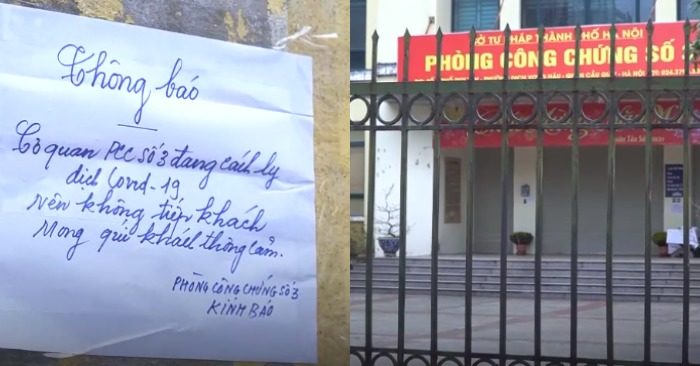 Thông báo
Cơ quan PCC số 3 đang cách ly
dịch Covid-19
nên không tiếp khách
Mong quí khách thông cảm.
PHÒNG CÔNG CHỨNG SỐ 3
KÍNH BÁO
SỞ TƯ PHÁP THÀNH PHỐ HÀ NỘI
PHÒNG CÔNG CHỨNG SỐ 3